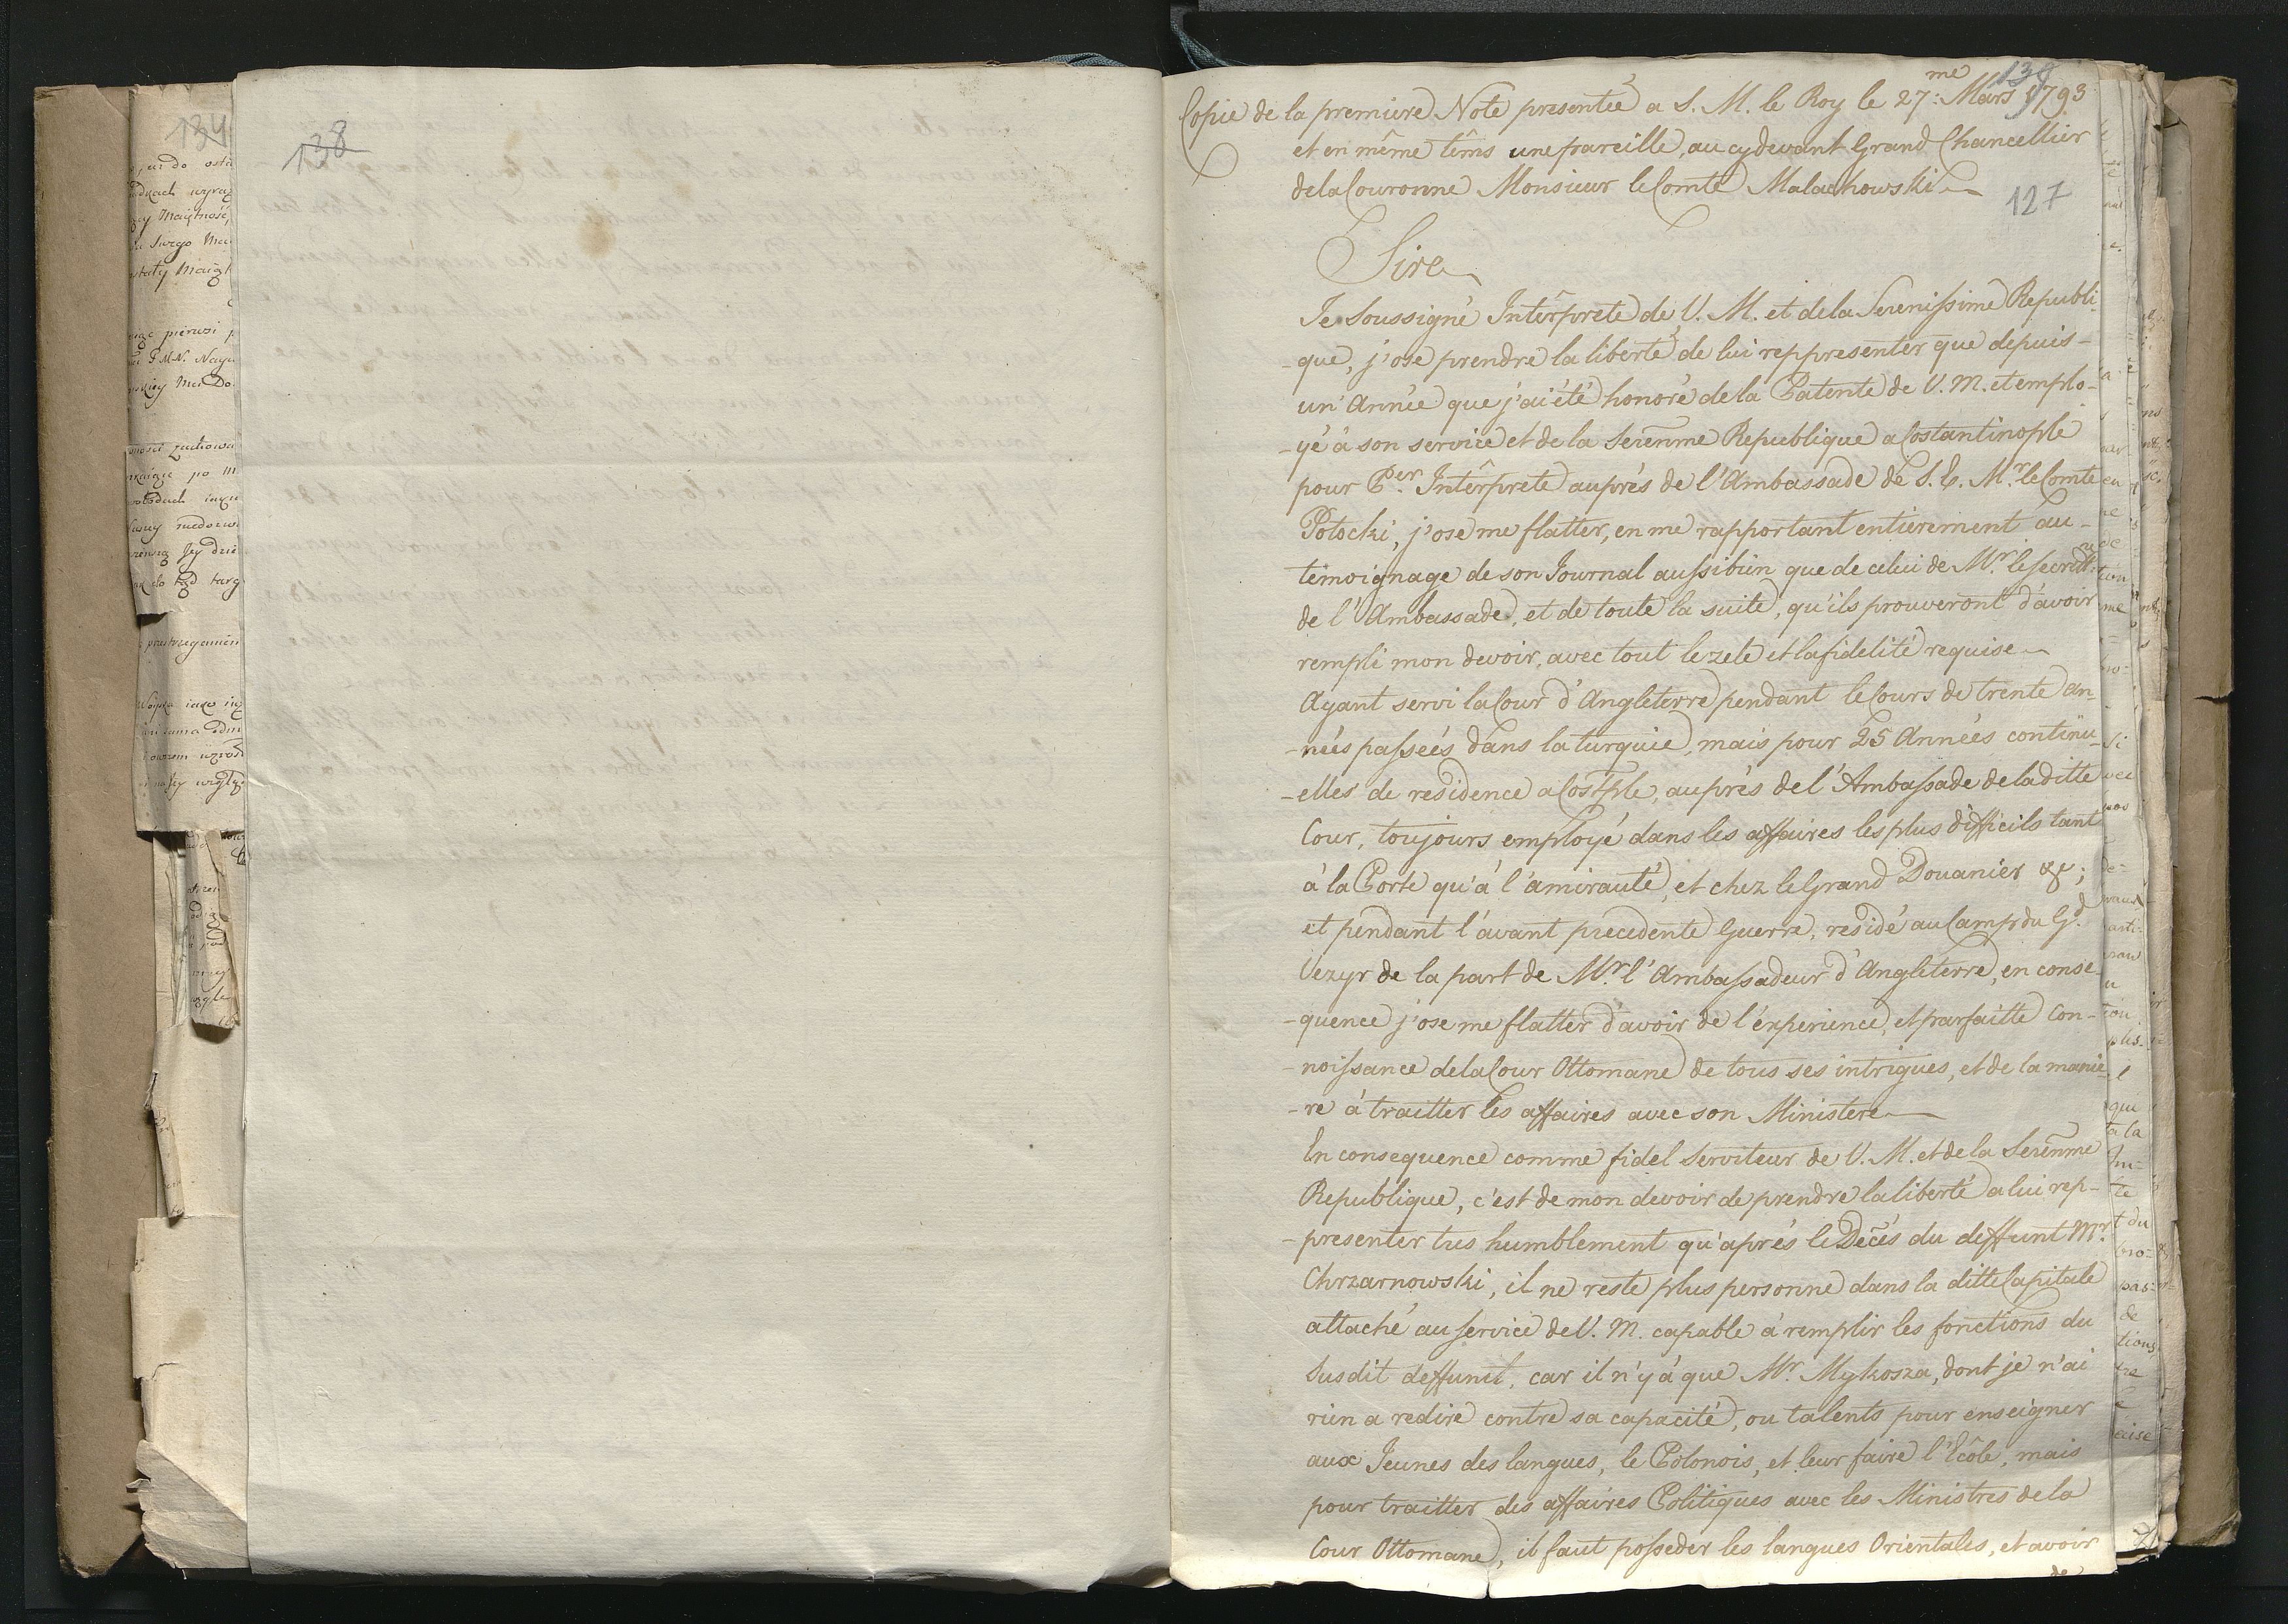 134
138
138
Copie de la premiere Note presentée a S. M. le Roy le 27:me Mars 1793
et en même têms une pareille, au cydevant Grand Chancellier
de la Couronne Monsieur le Comte Malachowski
127
Sire
Je Soussigné Intêrprete de V. M. et de la Serenissime Republi-
-que, j'ose prendre la liberté de lui reppresenter que depuis-
un' Année que j'ai été honoré de la Patente de V. M. et emplo-
-yé à son service et de la Serenme Republique a Costantinople
pour P.er Intêrprete auprés de l'Ambassade de S. E. M.r le Comte
Potocki, j'ose me flatter, en me rapportant entierement au-
têmoignage de son Journal aussibien que de celui de M.r le secret.re
de l'Ambassade, et de toute la suite, qu'ils prouveront d'avoir
rempli mon devoir, avec tout le zele et la fidelité requise
Ayant servi la Cour d'Angleterre pendant le Cours de trente an-
-neés passeés dans la turquie, mais pour 25 Anneés continu-
-elles de residence a Costple, auprés de l'Ambassade de la ditte
Cour, toujours employé dans les affaires les plus difficils tant
à la Porte qu'à l'amirauté, et chez le Grand Douanier &c;
et pendant l'avant precedente Guerre, residé au Camp du G.d
Vezyr de la part de M.r l'Ambassadeur d'Angleterre, en conse-
-quence j'ose me flatter d'avoir de l'experience, et parfaitte Con-
-noissance de la Cour Ottomane de tous ses intrigues, et de la manie-
-re à traitter les affaires avec son Ministere
En consequence comme fidel Serviteur de V. M. et de la Serenme
Republique, c'est de mon devoir de prendre la liberté a lui rep-
-presenter tres humblement qu'aprés le Decés du deffunt M.r
Chrzarnowski, il ne reste plus personne dans la ditte Capitale
attaché au service de V. M. capable à remplir les fonctions du
Susdit deffunt, car il n'y à que M.r Mykosza, dont je n'ai
rien a redire contre sa capacité, ou talents pour enseigner
aux Jeunes des langues, le Polonois, et leur faire l'Ecôle, mais
pour traitter des affaires Politiques avec les Ministres de la
Cour Ottomane, il faut posseder les langues Orientales, et avoir
de